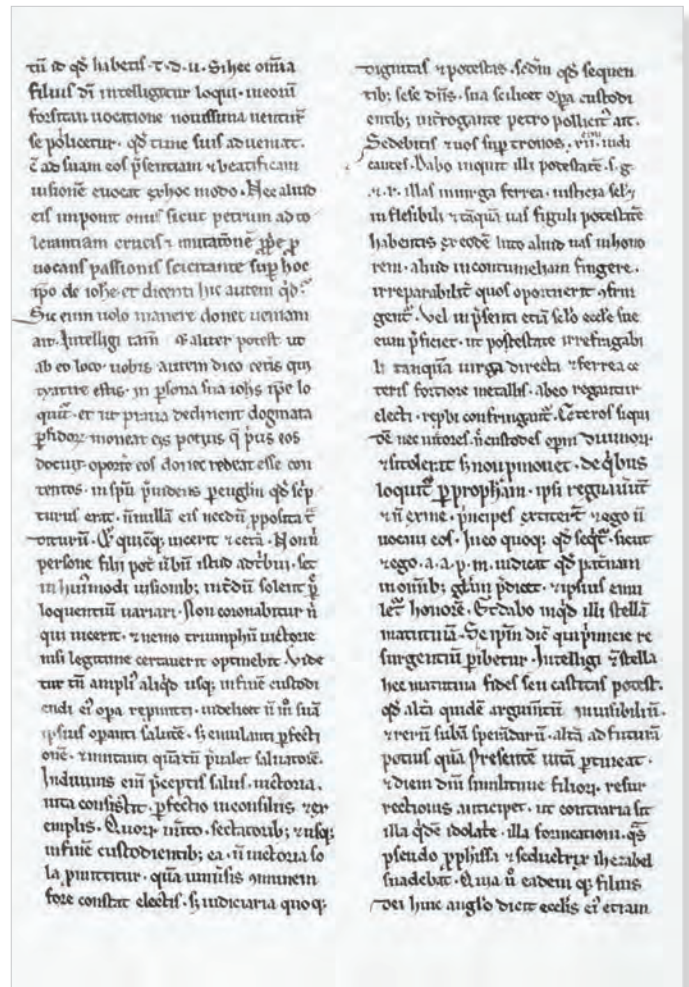 tñ id qď habetis · t · d · u · Si hec om̃ia
filius dī intelligatur loqui · in eoꝝ
forsitan uocatione nouissima uenturũ
se pollicetur · qď tunc suis adueniat ·
c̃ ad suam eos p̃sentiam ⁊ beatificam
uisionẽ euocat ex hoc modo · Nec aliud
eis imponit onus sicut petrum ad to
lerantiam crucis ⁊ imitatõnẽ ꝓpͥe ꝓ
uocans passionis sciscitante sup̃ hoc
ip̃o de ioħe · et dicenti hic autem qď?
Sic eum uolo manere donec ueniam
ait · Intelligi tam̃ aliter potest ut
ab eo loco · uobis autem dico cet̃is qui
tyatire estis · in ꝑsona sua ioħs ip̃e lo
quat̃ · et ut praua declinent dogmata
ꝑfidoꝝ moneat eis potius q̃ p̃us eos
docuit · oport̃e eos donec redeat esse con
tentos · in sp̃u p̃uidens euglm̃ qď sc̃p
turus erat · ñ nullã eis necdũ ꝓposita
diturũ · Et quicũq; uicerit ⁊ cet̃a · Non ñ
persone filii pot̃ ũbũ istud adt̃bui · set
in hui9modi uisionib; int̃dũ solent ꝑ̃
loquentiũ uariari · Non coronabitur ñ
qui uicerit · ⁊ nemo triumphũ uictorie
nisi legitime certauerit optinebit · Vide
tur tñ ampli9 aliqď usq; in finẽ custodi
endi ei9 opa repmitti · uidelicet ñ m̃ suã
ipsius opanti salutẽ · sꝫ emulanti ꝑfecti
onẽ · ⁊ imitanti quãtũ p̃ualet saluatorẽ ·
In diuinis eim̃ p̃ceptis salus · uictoria ·
uita consistit · ꝑfectio in consiliis ⁊ ex
emplis · Quoꝝ nito · sectatorib; ⁊ usq;
in finẽ custodientib; ea · ñ uictoria so
la p̃mittitur · quã uniũsis ꝯmunem
fore constat electis · sꝫ iudiciaria quoq;
dignitas ⁊ potestas · secd̃m qď sequen
tib; sese diĩs · sua scilicet opa custodi
entib; int̃rogante petro pollicet̃ ait ·
Sedebitis ⁊ uos sup̃ tronos · xii · iudi
cantes · Dabo inquit illi potestatẽ · s · g ·
⁊ · r · illas in uirga ferrea · iusticia sc̃l;
inflexibili ⁊ tãquã uas figuli potestatẽ
habentis ex eodẽ luto aliud uas in hono
rem · aliud in contumeliam fingere ·
irreparabilit̃ quos oportuerit ꝯfrin
gent̃ · Vel in p̃senti etiã sc̃lo eccl̃e sue
eum p̃ficiet · ut potestate irrefragabi
li tanquã uirga directa ⁊ ferrea ce
teris fortiore metallis · ab eo regantur
electi · rep̃bi confringant̃ · Cet̃eros siqui
dẽ nec uictores · ñ custodes opm̃ diuinoꝝ ·
⁊ si tolerit sꝫ non p̃mouet · de q̃bus
loquit̃ ꝑ proph̃am · ipsi regnauer̃t
⁊ ñ ex me · p̃ncipes extiter̃t ⁊ ego ñ
uocaui eos · In eo quoq; qď seq̃t̃ · sicut
⁊ ego · a · a · p · m · indicat qď patnam
in omnib; gl̃am p̃dicet · ⁊ ipsius emu
let̃ honorẽ · Et dabo inq̃d illi stellã
matutinã · Se ipm̃ dic̃ qui p̃micie re
surgentiũ ꝑibetur · Intelligi ⁊ stella
hec matutina fides seu castitas potest ·
qď altã quidẽ argumtũ inuisibiliũ ·
⁊ rerũ sub̃a sperãdarũ · altã ad futurã
potius quã presentẽ uitã ꝑtineat ·
⁊ diem dñi similitudine filioꝝ · resur
rectionis anticipet · ut contraria sit
illa q̃dẽ idolatͥe · illa fornicationi · q̃s
pseudo ꝓph̃issa ⁊ seductrix iherabel
suadebat · Quia ũ eadem q; filius
dei huic angl̃o dicit eccl̃is ei9 etiam